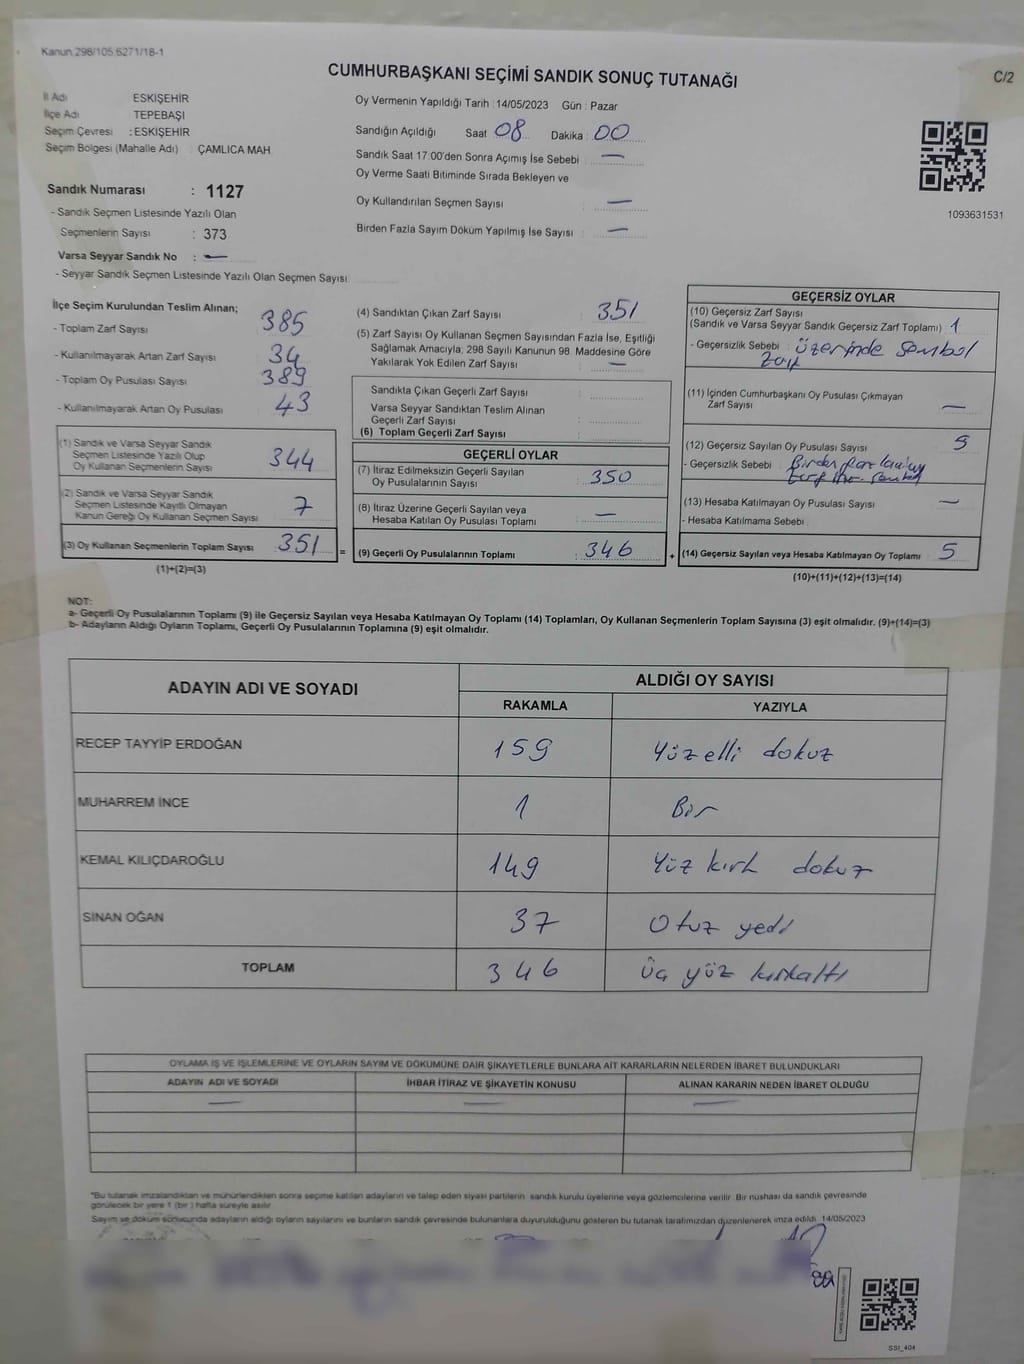 Kanun 298/105 6271/18-1
CUMHURBAŞKANI SEÇİMİ SANDIK SONUÇ TUTANAĞI
C/2
İl Adı ESKİŞEHİR
İlçe Adı TEPEBAŞI
Seçim Çevresi : ESKİŞEHİR
Seçim Bölgesi (Mahalle Adı) : ÇAMLICA MAH.
Sandık Numarası : 1127
- Sandık Seçmen Listesinde Yazılı Olan
Seçmenlerin Sayısı : 373
Varsa Seyyar Sandık No : —
- Seyyar Sandık Seçmen Listesinde Yazılı Olan Seçmen Sayısı:
Oy Vermenin Yapıldığı Tarih : 14/05/2023 Gün : Pazar
Sandığın Açıldığı Saat 08 Dakika 00
Sandık Saat 17:00'den Sonra Açımış İse Sebebi : —
Oy Verme Saati Bitiminde Sırada Bekleyen ve
Oy Kullandırılan Seçmen Sayısı : —
Birden Fazla Sayım Döküm Yapılmış İse Sayısı : —
1093631531
İlçe Seçim Kurulundan Teslim Alınan;
- Toplam Zarf Sayısı 385
- Kullanılmayarak Artan Zarf Sayısı 34
- Toplam Oy Pusulası Sayısı 389
- Kullanılmayarak Artan Oy Pusulası 43
(1) Sandık ve Varsa Seyyar Sandık
Seçmen Listesinde Yazılı Olup
Oy Kullanan Seçmenlerin Sayısı 344
(2) Sandık ve Varsa Seyyar Sandık
Seçmen Listesinde Kayıtlı Olmayan
Kanun Gereği Oy Kullanan Seçmen Sayısı 7
(3) Oy Kullanan Seçmenlerin Toplam Sayısı 351 =
(1)+(2)=(3)
(4) Sandıktan Çıkan Zarf Sayısı : 351
(5) Zarf Sayısı Oy Kullanan Seçmen Sayısından Fazla İse, Eşitliği
Sağlamak Amacıyla, 298 Sayılı Kanunun 98. Maddesine Göre
Yakılarak Yok Edilen Zarf Sayısı : —
Sandıkta Çıkan Geçerli Zarf Sayısı :
Varsa Seyyar Sandıktan Teslim Alınan
Geçerli Zarf Sayısı :
(6) Toplam Geçerli Zarf Sayısı :
GEÇERLİ OYLAR
(7) İtiraz Edilmeksizin Geçerli Sayılan
Oy Pusulalarının Sayısı : 350
(8) İtiraz Üzerine Geçerli Sayılan veya
Hesaba Katılan Oy Pusulası Toplamı : —
(9) Geçerli Oy Pusulalarının Toplamı : 346 +
GEÇERSİZ OYLAR
(10) Geçersiz Zarf Sayısı
(Sandık ve Varsa Seyyar Sandık Geçersiz Zarf Toplamı) 1
- Geçersizlik Sebebi : Üzerinde Sembol
(11) İçinden Cumhurbaşkanı Oy Pusulası Çıkmayan
Zarf Sayısı —
(12) Geçersiz Sayılan Oy Pusulası Sayısı 5
- Geçersizlik Sebebi : Birden
(13) Hesaba Katılmayan Oy Pusulası Sayısı —
- Hesaba Katılmama Sebebi :
(14) Geçersiz Sayılan veya Hesaba Katılmayan Oy Toplamı 5
(10)+(11)+(12)+(13)=(14)
NOT:
a- Geçerli Oy Pusulalarının Toplamı (9) ile Geçersiz Sayılan veya Hesaba Katılmayan Oy Toplamı (14) Toplamları, Oy Kullanan Seçmenlerin Toplam Sayısına (3) eşit olmalıdır. (9)+(14)=(3)
b- Adayların Aldığı Oyların Toplamı, Geçerli Oy Pusulalarının Toplamına (9) eşit olmalıdır.
ADAYIN ADI VE SOYADI
ALDIĞI OY SAYISI
RAKAMLA YAZIYLA
RECEP TAYYİP ERDOĞAN 159 Yüz elli dokuz
MUHARREM İNCE 1 Bir
KEMAL KILIÇDAROĞLU 149 Yüz kırk dokuz
SİNAN OĞAN 37 Otuz yedi
TOPLAM 346 Üç yüz kırkaltı
OYLAMA İŞ VE İŞLEMLERİNE VE OYLARIN SAYIM VE DÖKÜMÜNE DAİR ŞİKAYETLERLE BUNLARA AİT KARARLARIN NELERDEN İBARET BULUNDUKLARI
ADAYIN ADI VE SOYADI İHBAR İTİRAZ VE ŞİKAYETİN KONUSU ALINAN KARARIN NEDEN İBARET OLDUĞU
— — —
"Bu tutanak imzalandıktan ve mühürlendikten sonra seçime katılan adayların ve talep eden siyasi partilerin sandık kurulu üyelerine veya gözlemcilerine verilir. Bir nüshası da sandık çevresinde
görülecek bir yere 1 (bir) hafta süreyle asılır.
Sayım ve döküm sonucunda adayların aldığı oyların sayılarını ve bunların sandık çevresinde bulunanlara duyurulduğunu gösteren bu tutanak tarafımızdan düzenlenerek imza edildi. 14/05/2023
SSI_404